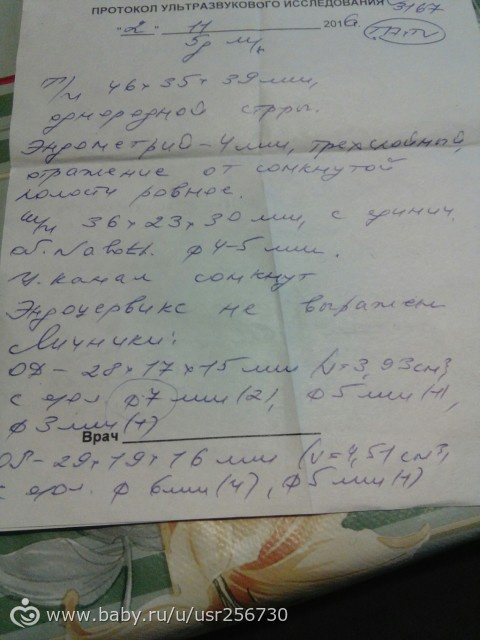 ПРОТОКОЛ УЛЬТРАЗВУКОВОГО ИССЛЕДОВАНИЯ 3167
"2" 11 2016г.
5д м/ц
Т/м 46х35х39мм,
однородной стр-ры.
Эндометрий - 4мм, трехслойный,
отражение от сомкнутой
полости ровное.
ш/м 36х23х30мм, с единич.
ov. Naboth. ф4-5мм.
Ц. канал сомкнут
Эндоцервикс не выражен
Яичники:
OD - 28х17х15мм (V=3,93см³,
с фол. ф7мм(2), ф5мм(4),
ф3мм(4)
Врач
OS - 29х19х16мм (V=4,51см³,
с фол. ф6мм(4), ф5мм(4)
www.baby.ru/u/usr256730